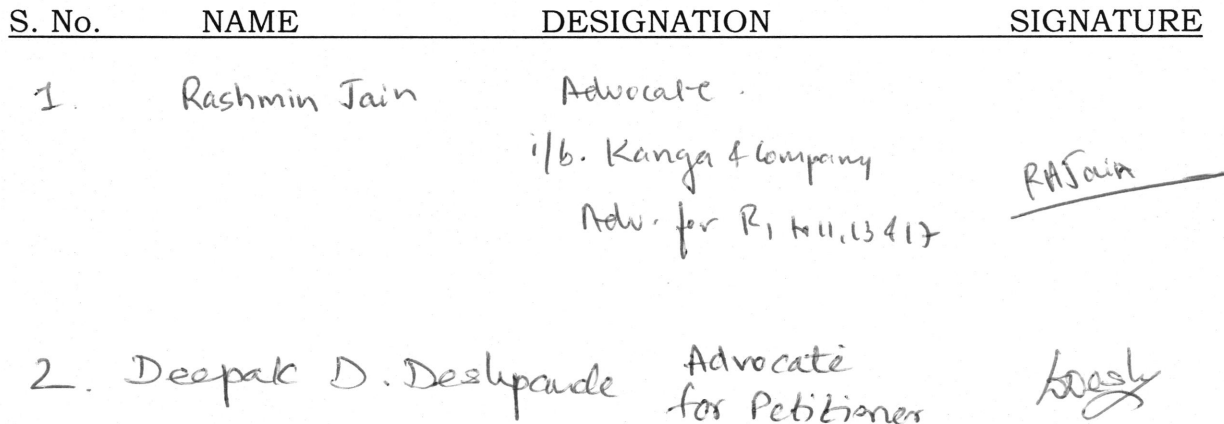 S. No. NAME DESIGNATION SIGNATURE
1. Rashmin Jain Advocate.
i/b. Kanga & Company
RAJain
Adv. for R, to 11, 13 & 17
2. Deepak D. Deshpande Advocate
for Petitioner